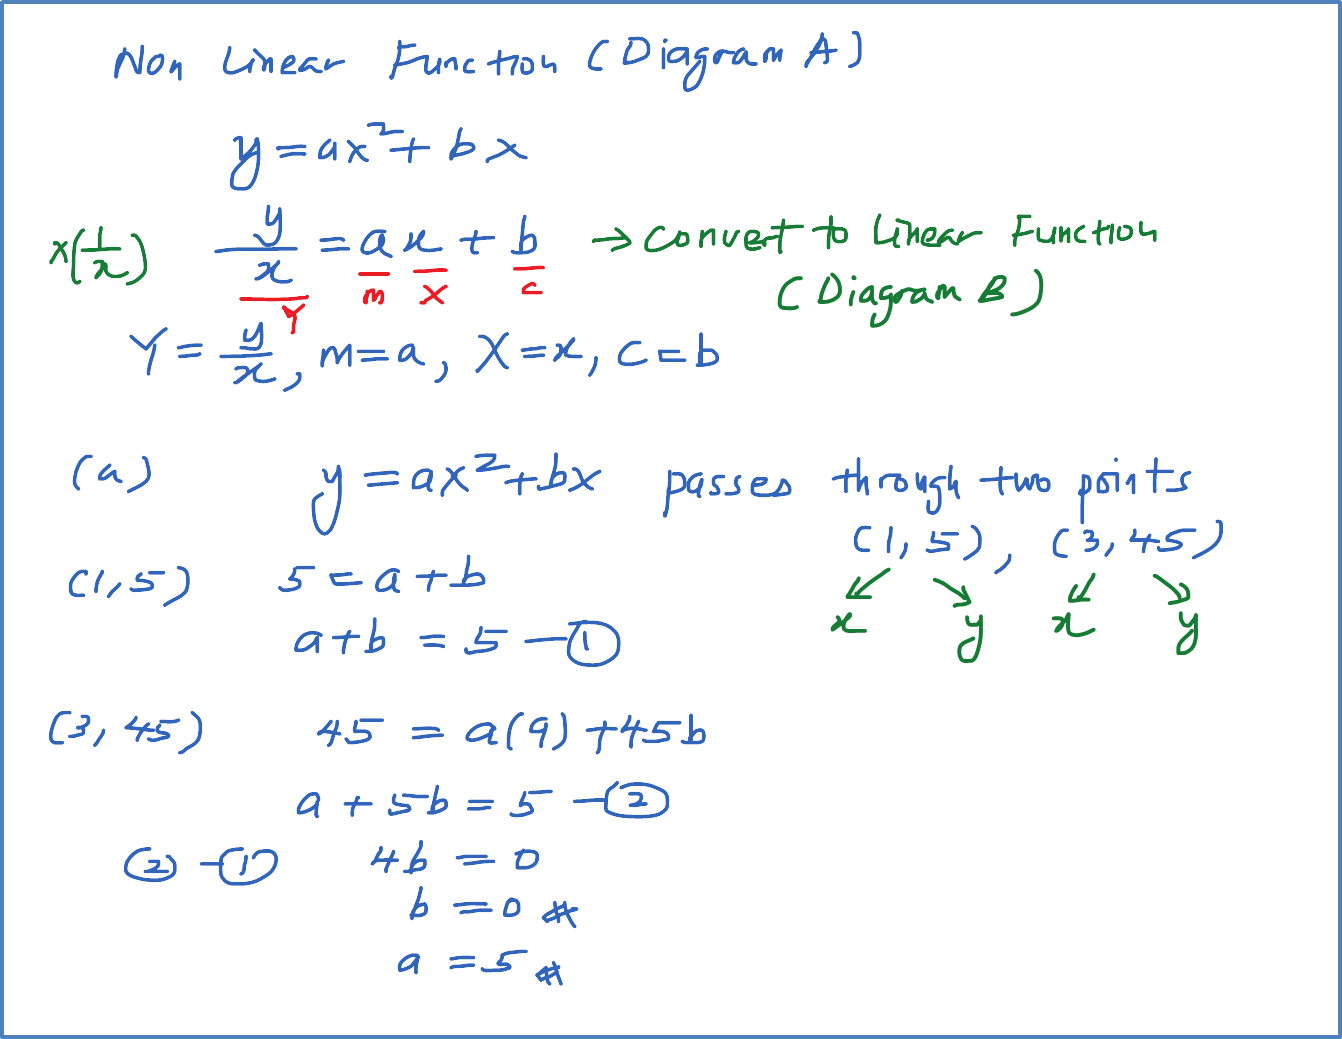 Non Linear Function (Diagram A)
y = ax² + bx
x(1/x) y/x = ax + b → Convert to Linear Function
Y m X c (Diagram B)
Y = y/x, m = a, X = x, c = b
(a) y = ax² + bx passes through two points
(1, 5), (3, 45)
x y x y
(1, 5) 5 = a + b
a + b = 5 — ①
(3, 45) 45 = a(9) + 45b
a + 5b = 5 — ②
② - ① 4b = 0
b = 0 #
a = 5 #